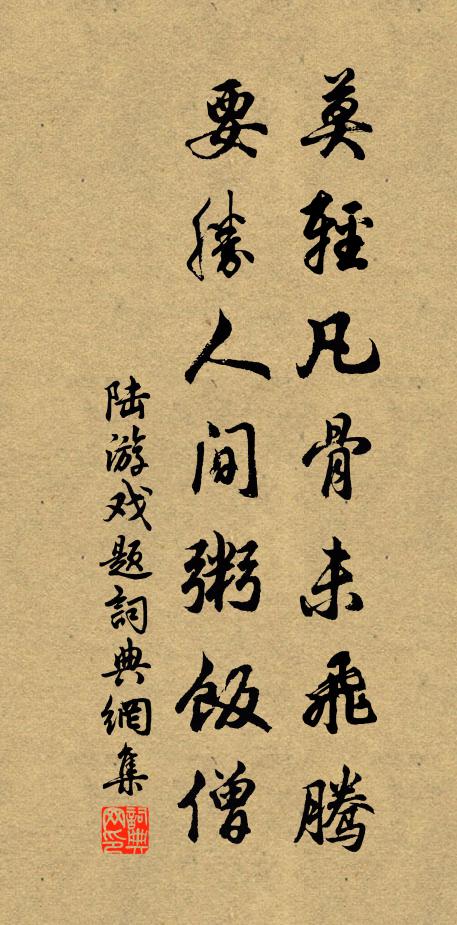 莫輕凡骨未飛騰
要勝人間粥飯僧
陆游戏题詞典網集
詞典网印